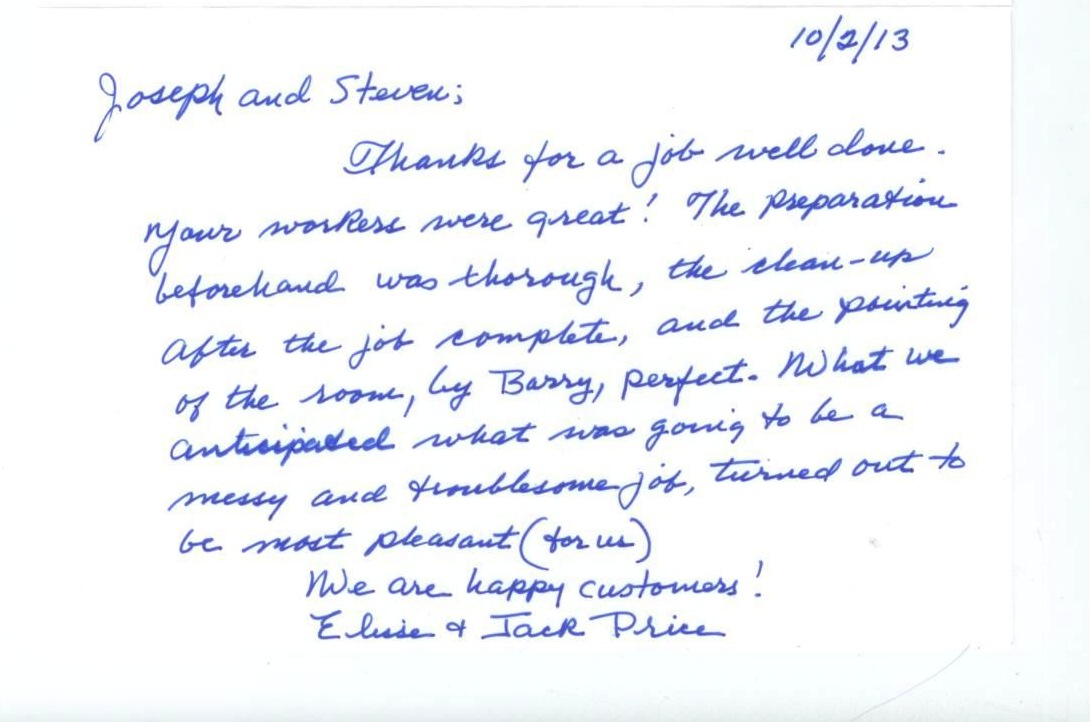 10/2/13
Joseph and Steven;
Thanks for a job well done.
Your workers were great! The preparation
beforehand was thorough, the clean-up
after the job complete, and the painting
of the room, by Barry, perfect. What we
anticipated what was going to be a
messy and troublesome job, turned out to
be most pleasant (for us)
We are happy customers!
& Jack Price